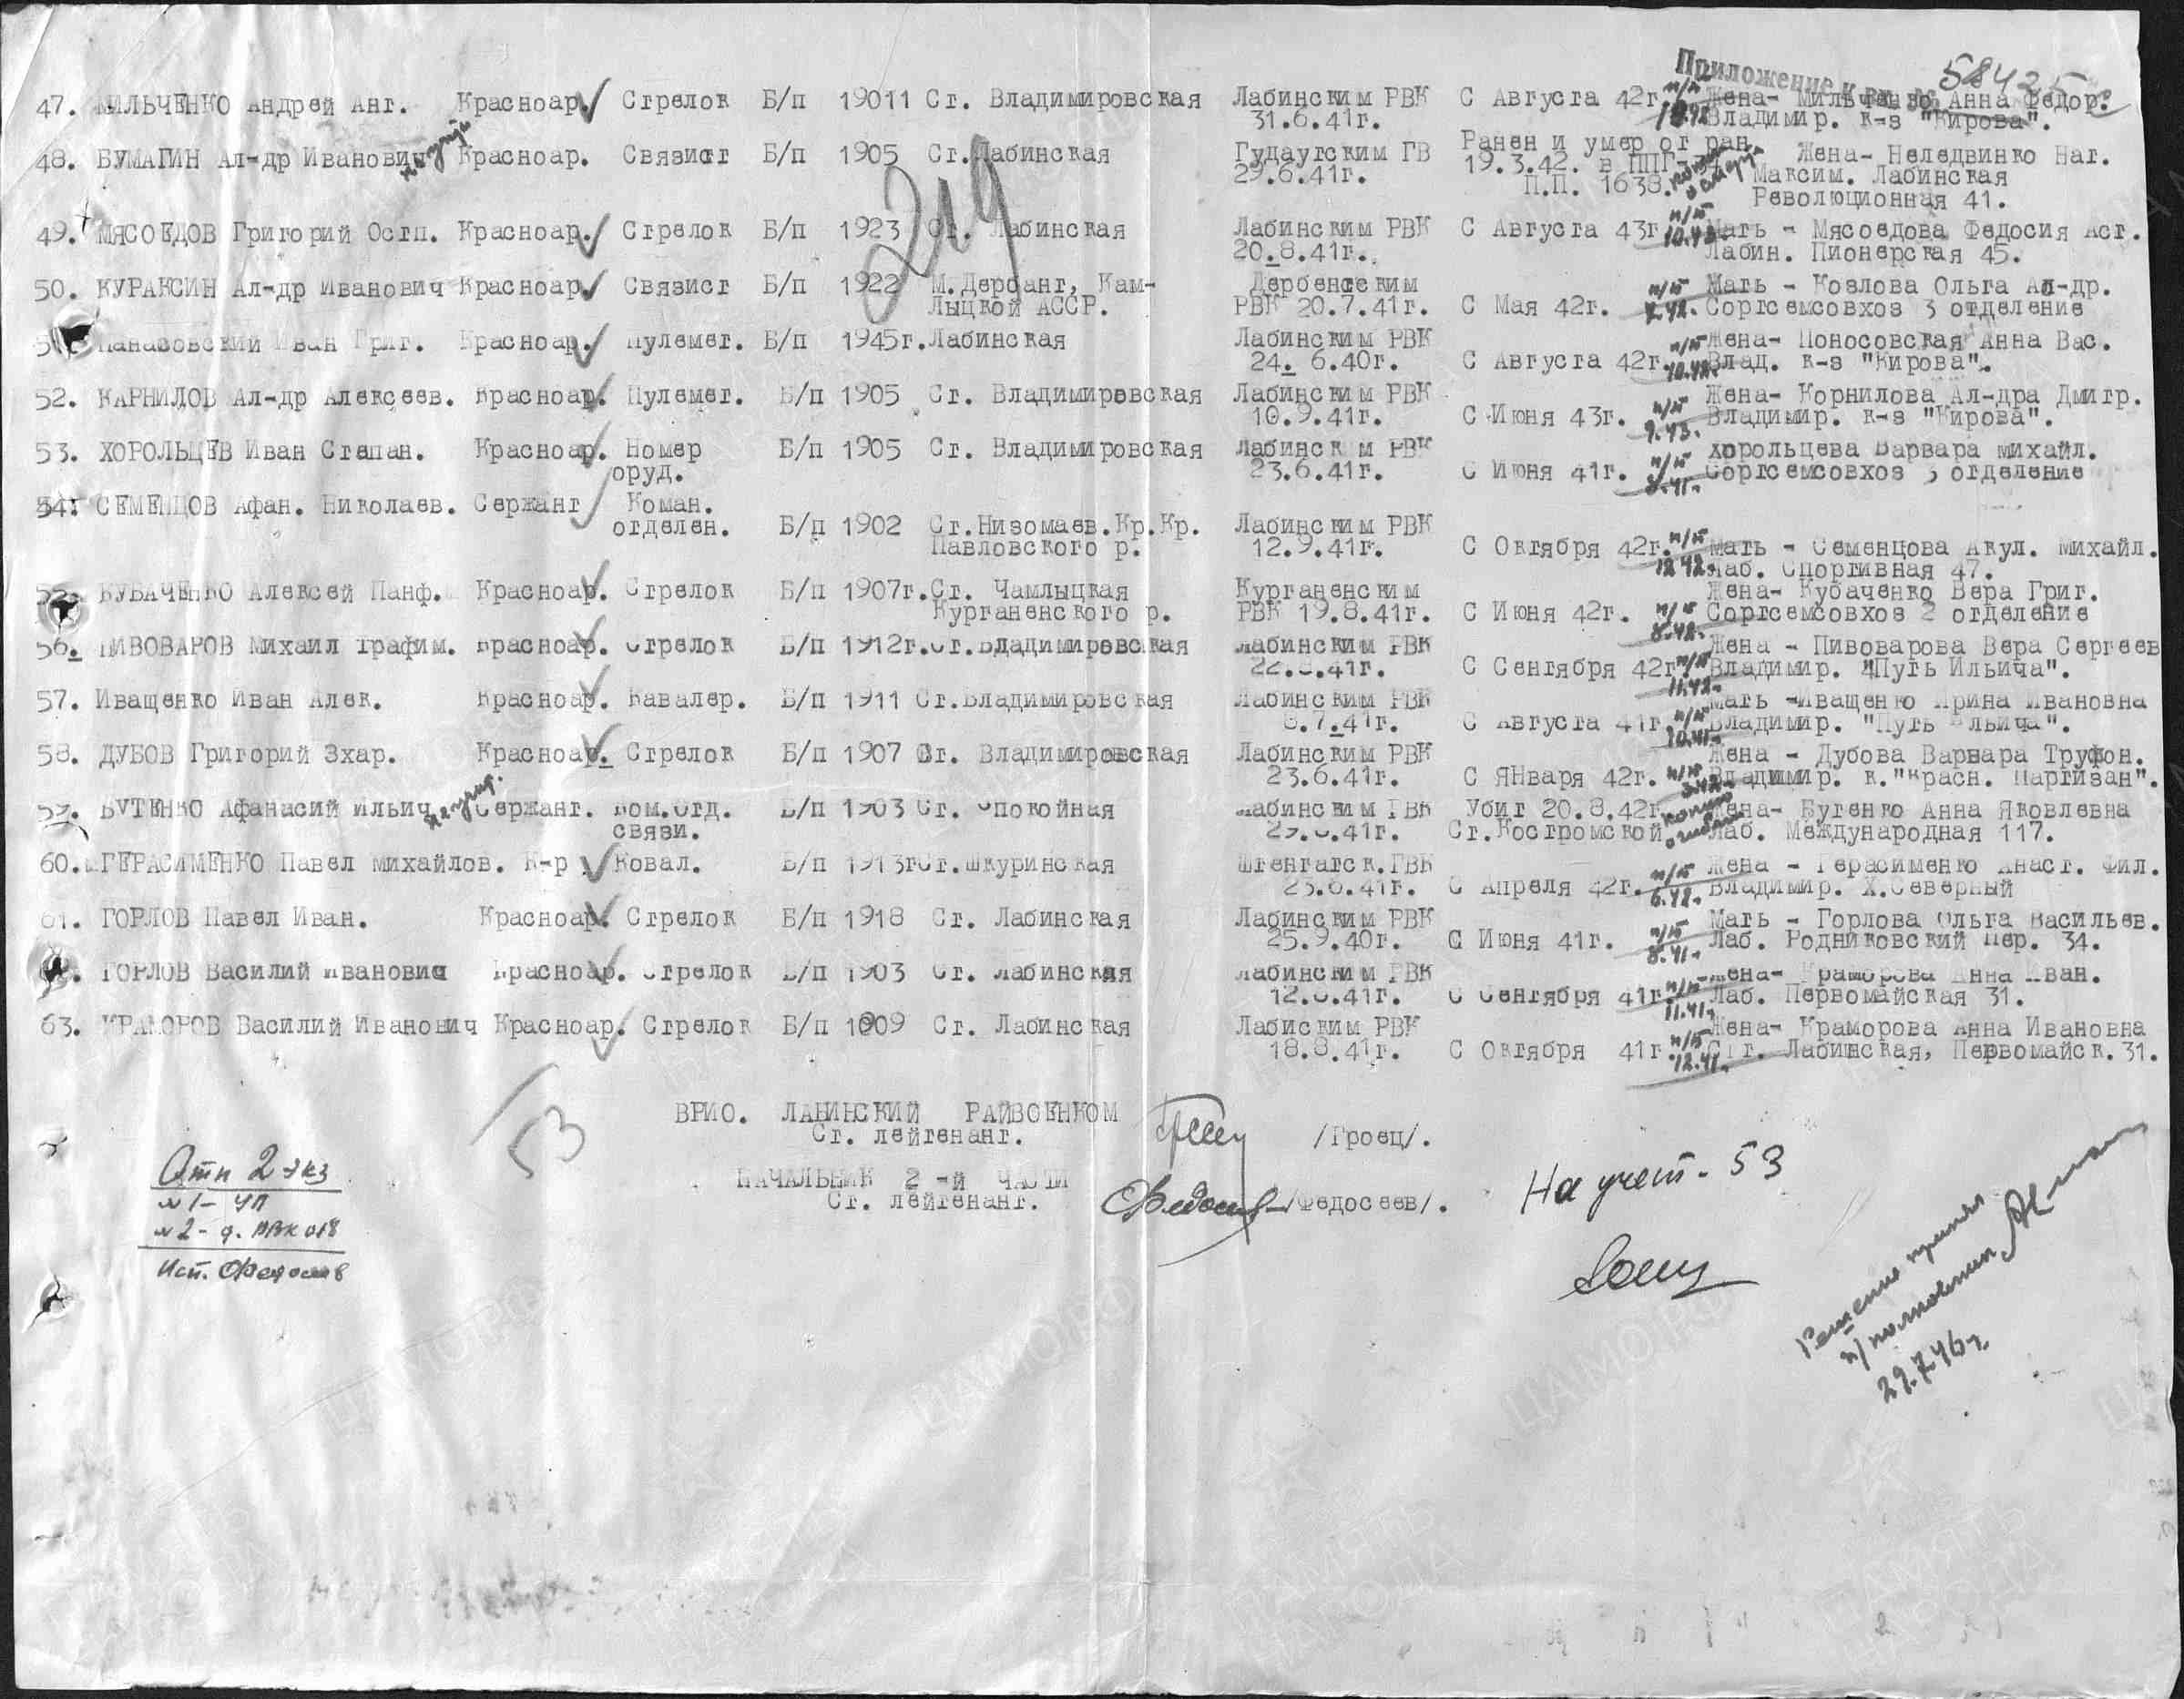 Приложение к вх. №
58425с
47. МИЛЬЧЕНКО Андрей Анг. Красноар. Стрелок Б/п 19011 Ст. Владимировская Лабинским РВК С Августа 42г п/п Жена- Мильченко Анна Федор.
31.6.41г. 10.42 Владимир. к-з "Кирова".
48. БУМАГИН Ал-др Иванович на учете Красноар. Связист Б/п 1905 Ст.Лабинская Гудаутским ГВ Ранен и умер от ран
29.6.41г. 19.3.42. в ППГ- Жена- Неледвинко Наг.
П.П. 1638. Максим. Лабинская
Революционная 41.
219
49. МЯСОЕДОВ Григорий Остп. Красноар. Стрелок Б/п 1923 Ст. Лабинская Лабинским РВК С Августа 43г п/п Мать - Мясоедова Федосия Аст.
20.8.41г. 10.43. Лабин. Пионерская 45.
50. КУРАКСИН Ал-др Иванович Красноар. Связист Б/п 1922 М.Дербанг, Кам- Дербентским п/п Мать - Козлова Ольга Ал-др.
лыцкой АССР. РВК 20.7.41г. С Мая 42г. 7.42. Сортсемсовхоз 3 отделение
Панасовский Иван Григ. Красноар. Пулемет. Б/п 1945г.Лабинская Лабинским РВК Жена- Поносовская Анна Вас.
24. 6.40г. С Августа 42г. п/п 10.42. Влад. к-з "Кирова".
52. КАРНИЛОВ Ал-др Алексеев. Красноар. Пулемет. Б/п 1905 Ст. Владимировская Лабинским РВК Жена- Корнилова Ал-дра Дмитр.
10.9.41г. С Июня 43г. п/п 9.43. Владимир. к-з "Кирова".
53. ХОРОЛЬЦЕВ Иван Степан. Красноар. Номер Б/п 1905 Ст. Владимировская Лабинск м РВК Хорольцева Варвара Михайл.
оруд. 23.6.41г. С Июня 41г. п/п 8.41. Сортсемсовхоз 3 отделение
54. СЕМЕНЦОВ Афан. Николаев. Сержант Коман.
отделен. Б/п 1902 Ст.Низомаев.Кр.Кр. Лабинским РВК
Павловского р. 12.9.41г. С Октября 42г. п/п Мать - Семенцова Акул. Михайл.
12.42. Лаб. Спортивная 47.
55. КУБАЧЕНКО Алексей Панф. Красноар. Стрелок Б/п 1907г.Ст. Чамлыцкая Курганенским Жена- Кубаченко Вера Григ.
Курганенского р. РВК 19.8.41г. С Июня 42г. п/п 8.42. Сортсемсовхоз 2 отделение
56. ПИВОВАРОВ Михаил Трафим. Красноар. Стрелок Б/п 1912г.Ст.Владимировская Лабинским РВК Жена - Пивоварова Вера Сергеев
41г. С Сентября 42г п/п 11.42. Владимир. "Путь Ильича".
57. Иващенко Иван Алек. Красноар. Кавалер. Б/п 1911 Ст.Владимировская Лабинским РВК Мать -Иващенко Ирина Ивановна
7.41г. С Августа 41г. п/п 10.41. Владимир. "Путь Ильича".
58. ДУБОВ Григорий Зхар. Красноар. Стрелок Б/п 1907 Ст. Владимировская Лабинским РВК Жена - Дубова Варвара Труфон.
23.6.41г. С ЯНваря 42г. п/п Владимир. к."Красн. Партизан".
59. БУТЕНКО Афанасий Ильич на учете Сержант. Ком.Отд. Б/п 1903 Ст. Спокойная Лабинским РВК Убит 20.8.42г. Жена- Бутенко Анна Яковлевна
связи. 41г. Ст.Костромской Лаб. Международная 117.
60. ГЕРАСИМЕНКО Павел Михайлов. К-р Ковал. Б/п 1913гСт.Шкуринская Штенгатск.ГВК Жена - Герасименко Анаст. Фил.
23.6.41г. С Апреля 42г. п/п 6.42. Владимир. Х.Северный
61. ГОРЛОВ Павел Иван. Красноар. Стрелок Б/п 1918 Ст. Лабинская Лабинским РВК Мать - Горлова Ольга Васильев.
25.9.40г. С Июня 41г. п/п 8.41. Лаб. Родниковский Пер. 34.
ГОРЛОВ Василий Иванович Красноар. Стрелок Б/п 1903 Ст. Лабинская Лабинским РВК Жена- Краморова Анна Иван.
41г. С Сентября 41г. п/п 11.41. Лаб. Первомайская 31.
63. КРАМОРОВ Василий Иванович Красноар. Стрелок Б/п 1909 Ст. Лабинская Лабиским РВК Жена- Краморова Анна Ивановна
18.8.41г. С Октября 41г. п/п 12.41. Ст. Лабинская, Первомайск.31.
53
ВРИО. ЛАБИНСКИЙ РАЙВОЕНКОМ
Ст. лейтенант. /Троец/.
НАЧАЛЬНИК 2-й ЧАСТИ
Ст. лейтенант. /Федосеев/.
Отп 2 экз
№1- УП
№2- д. РВК
Исп. Федосеев
На учет - 53
Решение принял
п/полковник
29.7.46г.